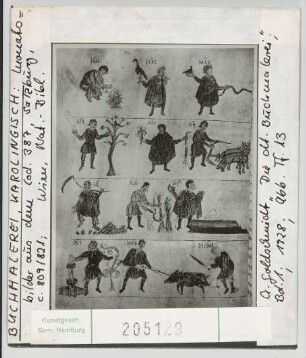 BUCHMALEREI, KAROLINGISCH: Monats-
bilder aus dem Cod. 387, Salzburg,
c. 809/821; Wien, Nat. Bibl.
A. Goldschmidt, Die dt. Buchmalerei;
Bd. I; 1928; Abb. Tf. 13
IAN
MAR
Kunstgesch.
Sem. Hamburg
205120